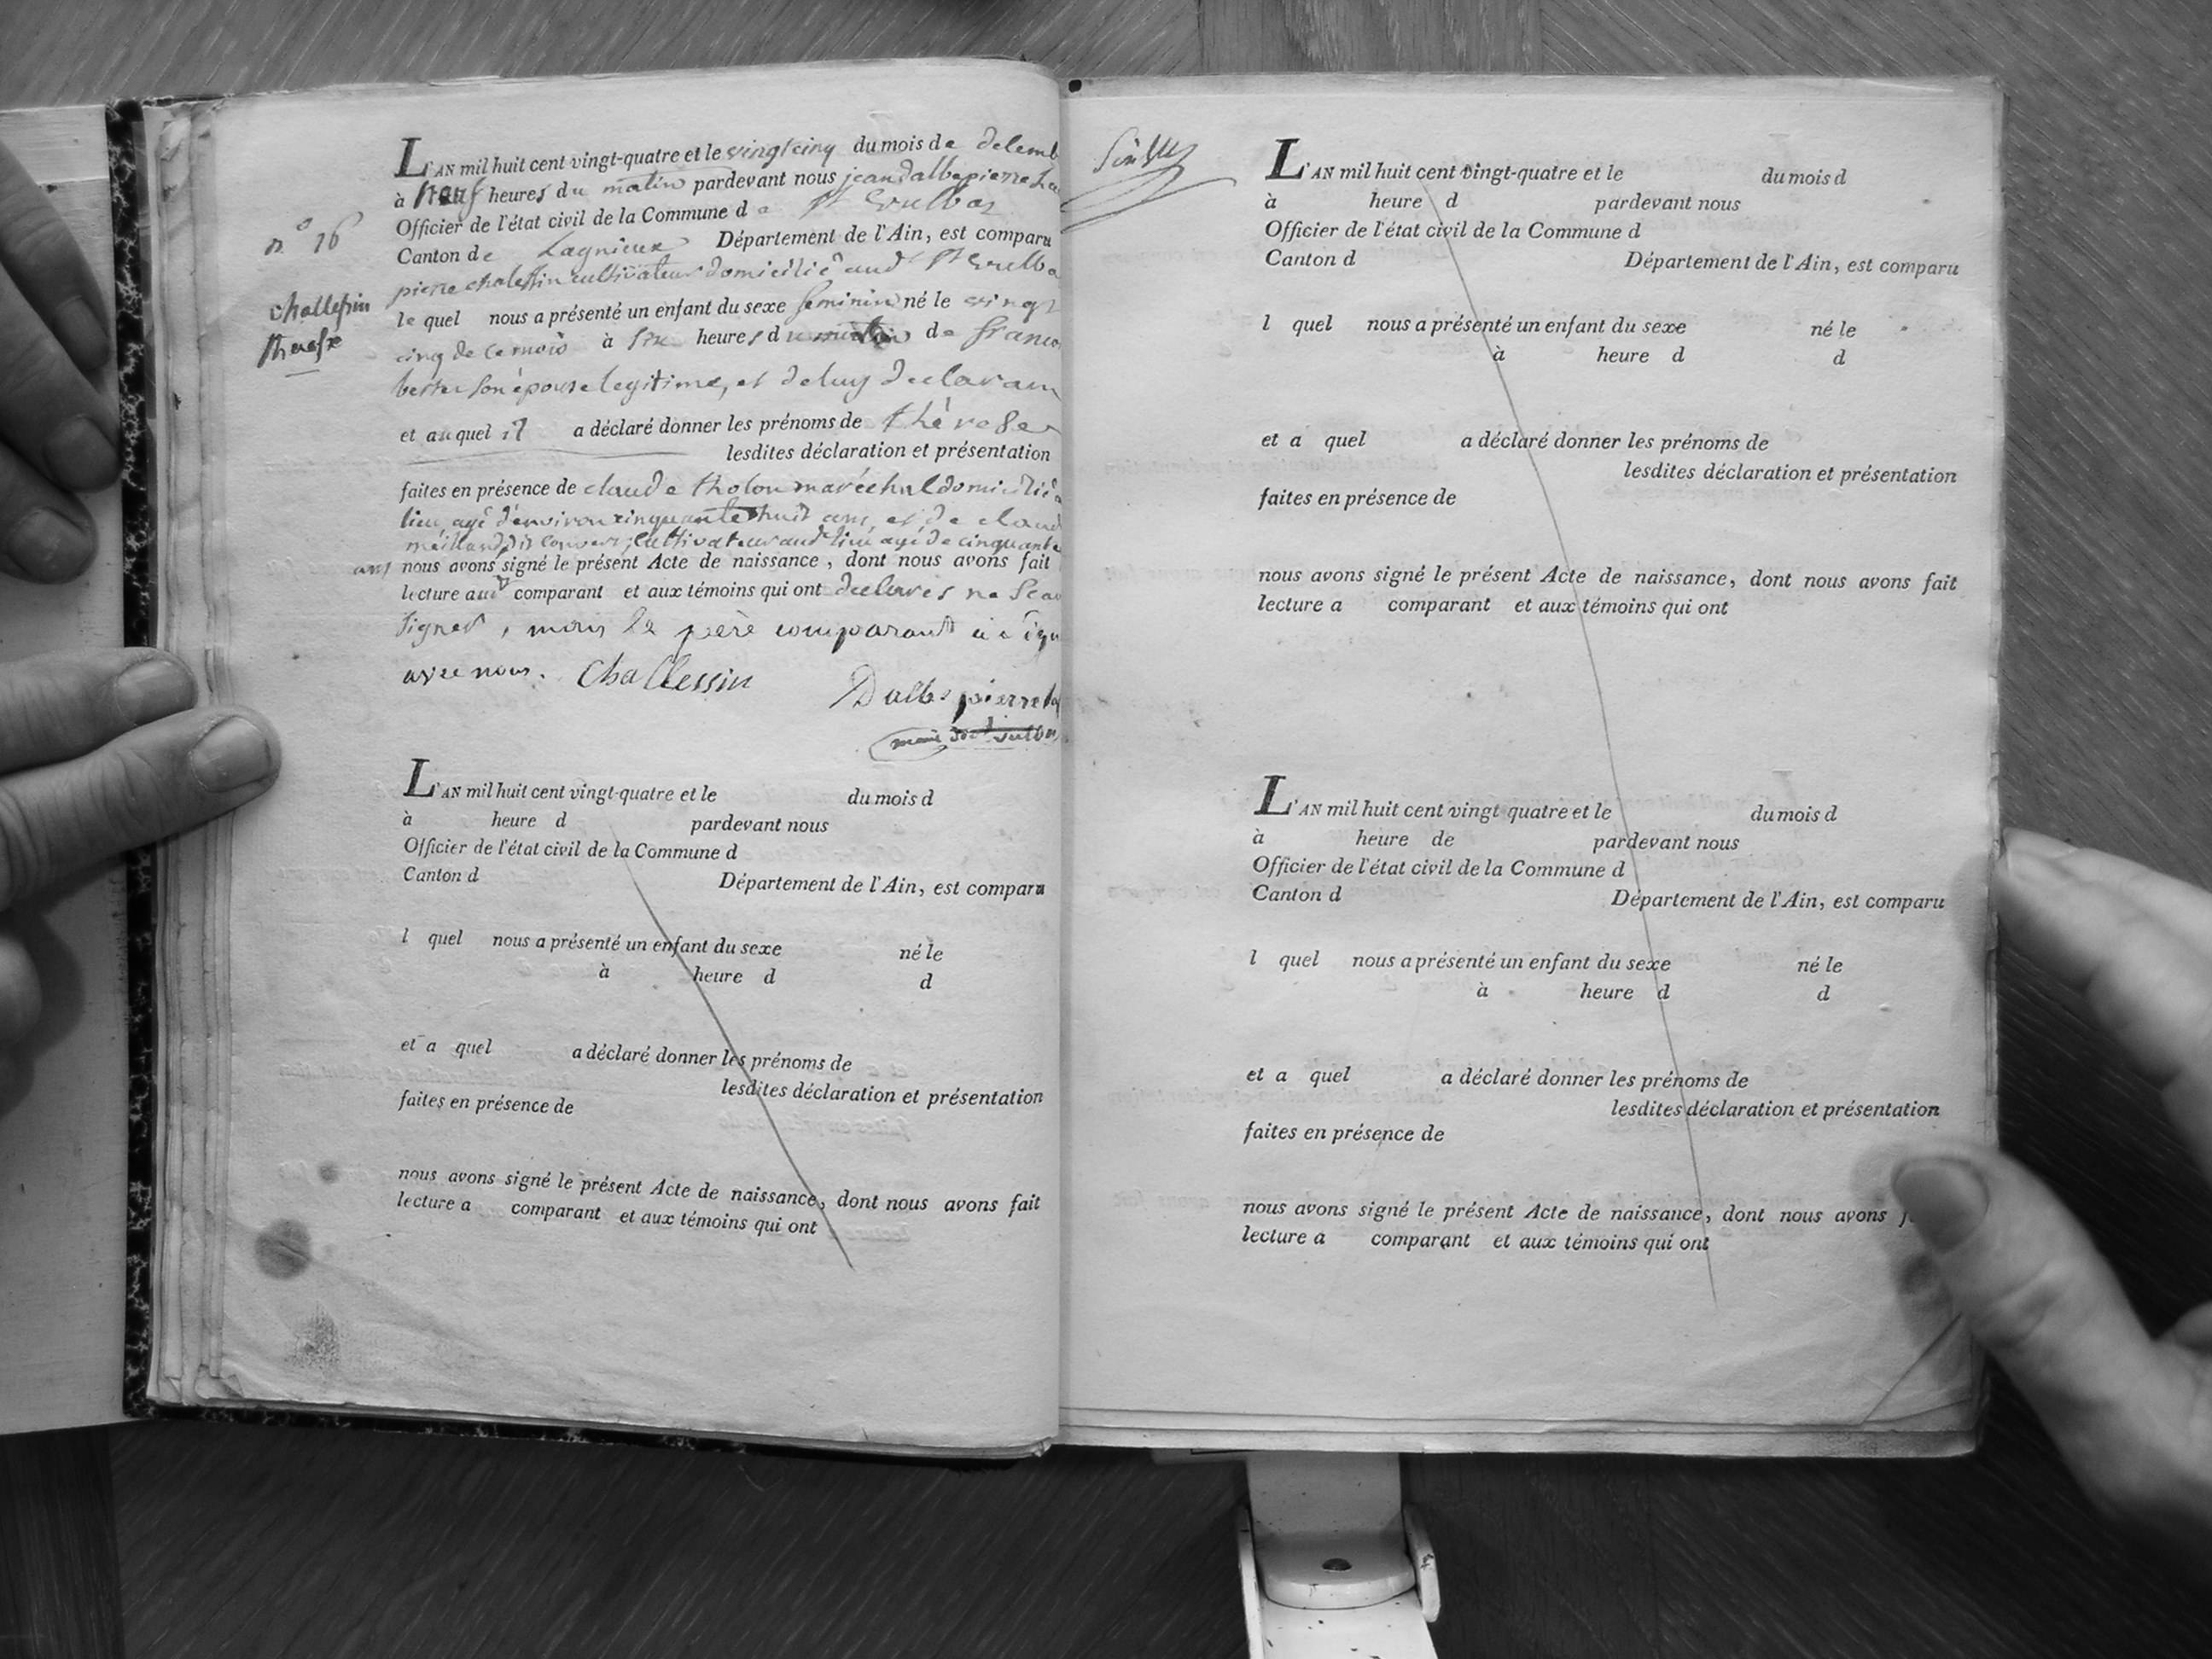 L'AN mil huit cent vingt-quatre et le vingt cinq du mois de decemb
à Neuf heures du matin pardevant nous jean dalbepierre
Officier de l'état civil de la Commune de St Vulbas
n.° 16
Canton de Lagnieux Département de l'Ain, est comparu
pierre chalessin cultivateur domicilié aud St Vulba
challessin
therese
le quel nous a présenté un enfant du sexe feminin né le vingt
cinq de ce mois à six heures du matin de franco
son épouse legitime, et de luy declarant
et auquel il a déclaré donner les prénoms de thérese
lesdites déclaration et présentation
faites en présence de claude tholon maréchal domicilié a
lieu agé d'environ cinquante huit ans, et de claud
cultivateur aud lieu agé de cinquante
ans nous avons signé le présent Acte de naissance, dont nous avons fait
lecture aud comparant et aux témoins qui ont declarés ne scav
signer, mais le père comparant a signé
avec nous. Challessin
Dalbepierre
maire de St Vulbas
L'AN mil huit cent vingt-quatre et le du mois d
à heure d pardevant nous
Officier de l'état civil de la Commune d
Canton d Département de l'Ain, est comparu
l quel nous a présenté un enfant du sexe né le
à heure d d
et a quel a déclaré donner les prénoms de
lesdites déclaration et présentation
faites en présence de
nous avons signé le présent Acte de naissance, dont nous avons fait
lecture a comparant et aux témoins qui ont
L'AN mil huit cent vingt-quatre et le du mois d
à heure d pardevant nous
Officier de l'état civil de la Commune d
Canton d Département de l'Ain, est comparu
l quel nous a présenté un enfant du sexe né le
à heure d d
et a quel a déclaré donner les prénoms de
lesdites déclaration et présentation
faites en présence de
nous avons signé le présent Acte de naissance, dont nous avons fait
lecture a comparant et aux témoins qui ont
L'AN mil huit cent vingt quatre et le du mois d
à heure de pardevant nous
Officier de l'état civil de la Commune d
Canton d Département de l'Ain, est comparu
l quel nous a présenté un enfant du sexe né le
à heure d d
et a quel a déclaré donner les prénoms de
lesdites déclaration et présentation
faites en présence de
nous avons signé le présent Acte de naissance, dont nous avons f
lecture a comparant et aux témoins qui ont